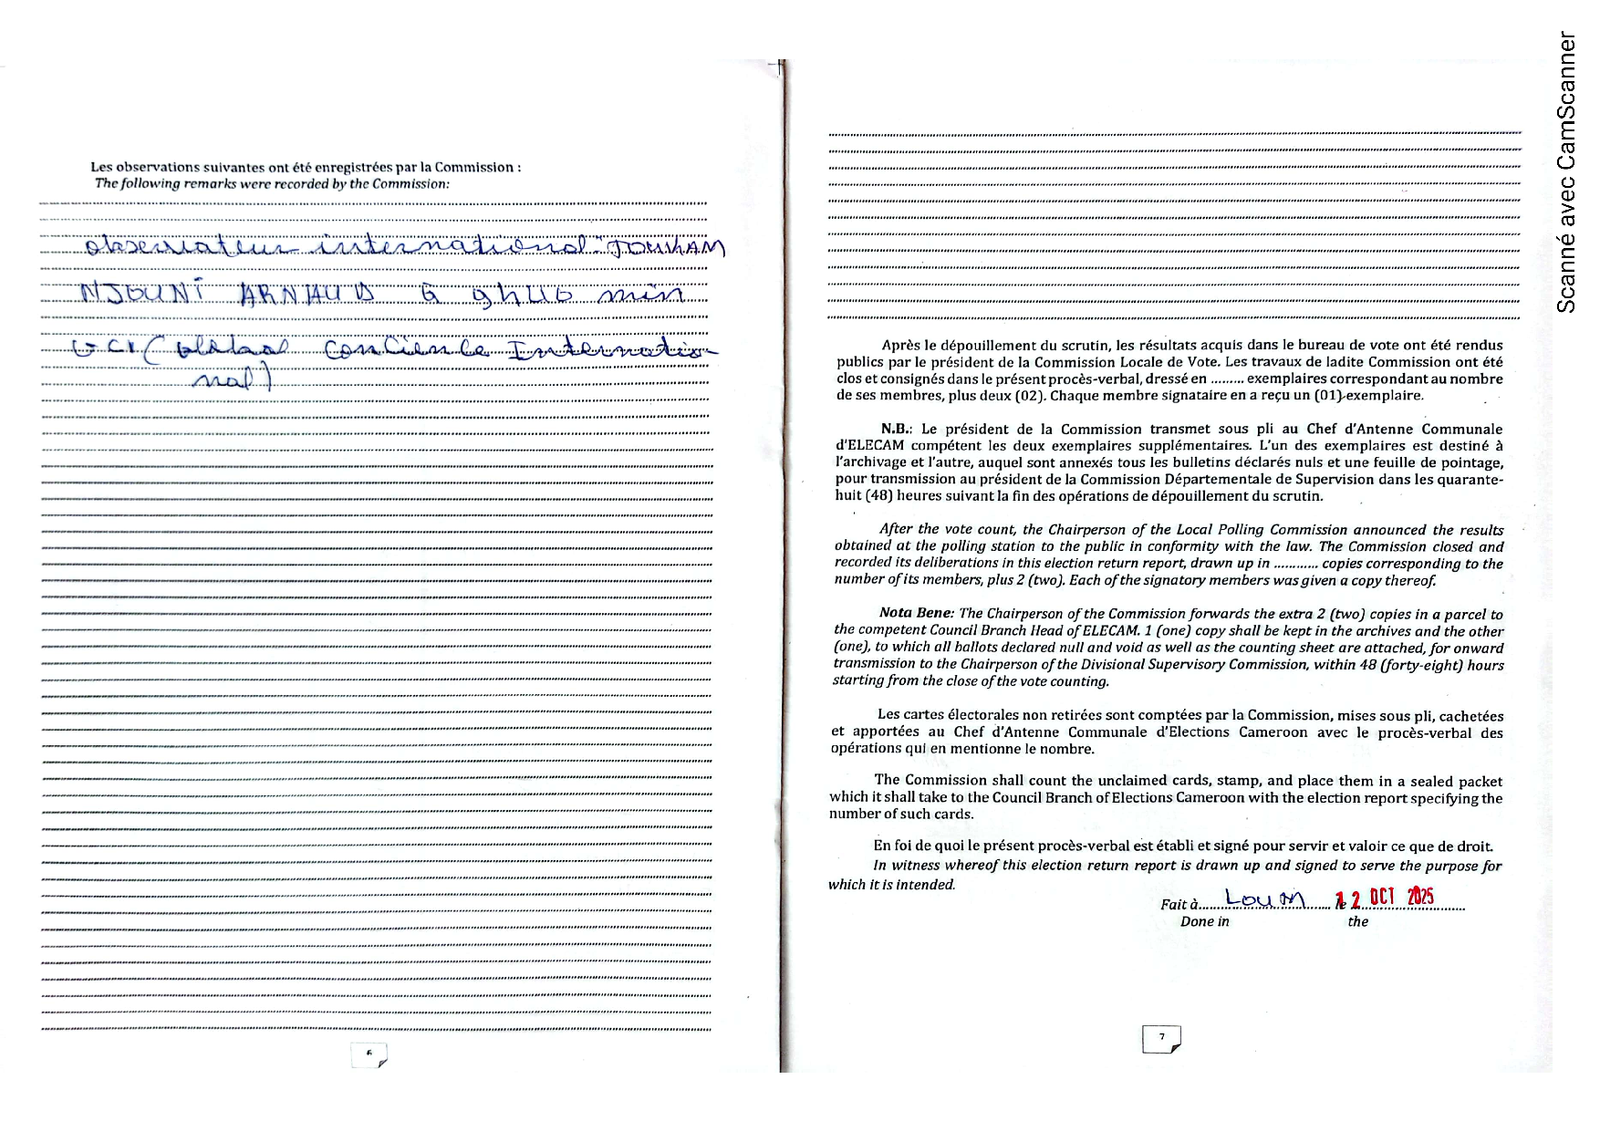 Les observations suivantes ont été enregistrées par la Commission :
The following remarks were recorded by the Commission:
observateur international : TOUKAM
NJOUNI ARNAUD à 9h46 min
GCI ( Global Concience Internatio
nal )
6
Après le dépouillement du scrutin, les résultats acquis dans le bureau de vote ont été rendus
publics par le président de la Commission Locale de Vote. Les travaux de ladite Commission ont été
clos et consignés dans le présent procès-verbal, dressé en ......... exemplaires correspondant au nombre
de ses membres, plus deux (02). Chaque membre signataire en a reçu un (01) exemplaire.
N.B.: Le président de la Commission transmet sous pli au Chef d'Antenne Communale
d'ELECAM compétent les deux exemplaires supplémentaires. L'un des exemplaires est destiné à
l'archivage et l'autre, auquel sont annexés tous les bulletins déclarés nuls et une feuille de pointage,
pour transmission au président de la Commission Départementale de Supervision dans les quarante-
huit (48) heures suivant la fin des opérations de dépouillement du scrutin.
After the vote count, the Chairperson of the Local Polling Commission announced the results
obtained at the polling station to the public in conformity with the law. The Commission closed and
recorded its deliberations in this election return report, drawn up in ............ copies corresponding to the
number of its members, plus 2 (two). Each of the signatory members was given a copy thereof.
Nota Bene: The Chairperson of the Commission forwards the extra 2 (two) copies in a parcel to
the competent Council Branch Head of ELECAM. 1 (one) copy shall be kept in the archives and the other
(one), to which all ballots declared null and void as well as the counting sheet are attached, for onward
transmission to the Chairperson of the Divisional Supervisory Commission, within 48 (forty-eight) hours
starting from the close of the vote counting.
Les cartes électorales non retirées sont comptées par la Commission, mises sous pli, cachetées
et apportées au Chef d'Antenne Communale d'Elections Cameroon avec le procès-verbal des
opérations qui en mentionne le nombre.
The Commission shall count the unclaimed cards, stamp, and place them in a sealed packet
which it shall take to the Council Branch of Elections Cameroon with the election report specifying the
number of such cards.
En foi de quoi le présent procès-verbal est établi et signé pour servir et valoir ce que de droit.
In witness whereof this election return report is drawn up and signed to serve the purpose for
which it is intended.
Fait à LOUM le 12 OCT 2025
Done in the
7
Scanné avec CamScanner